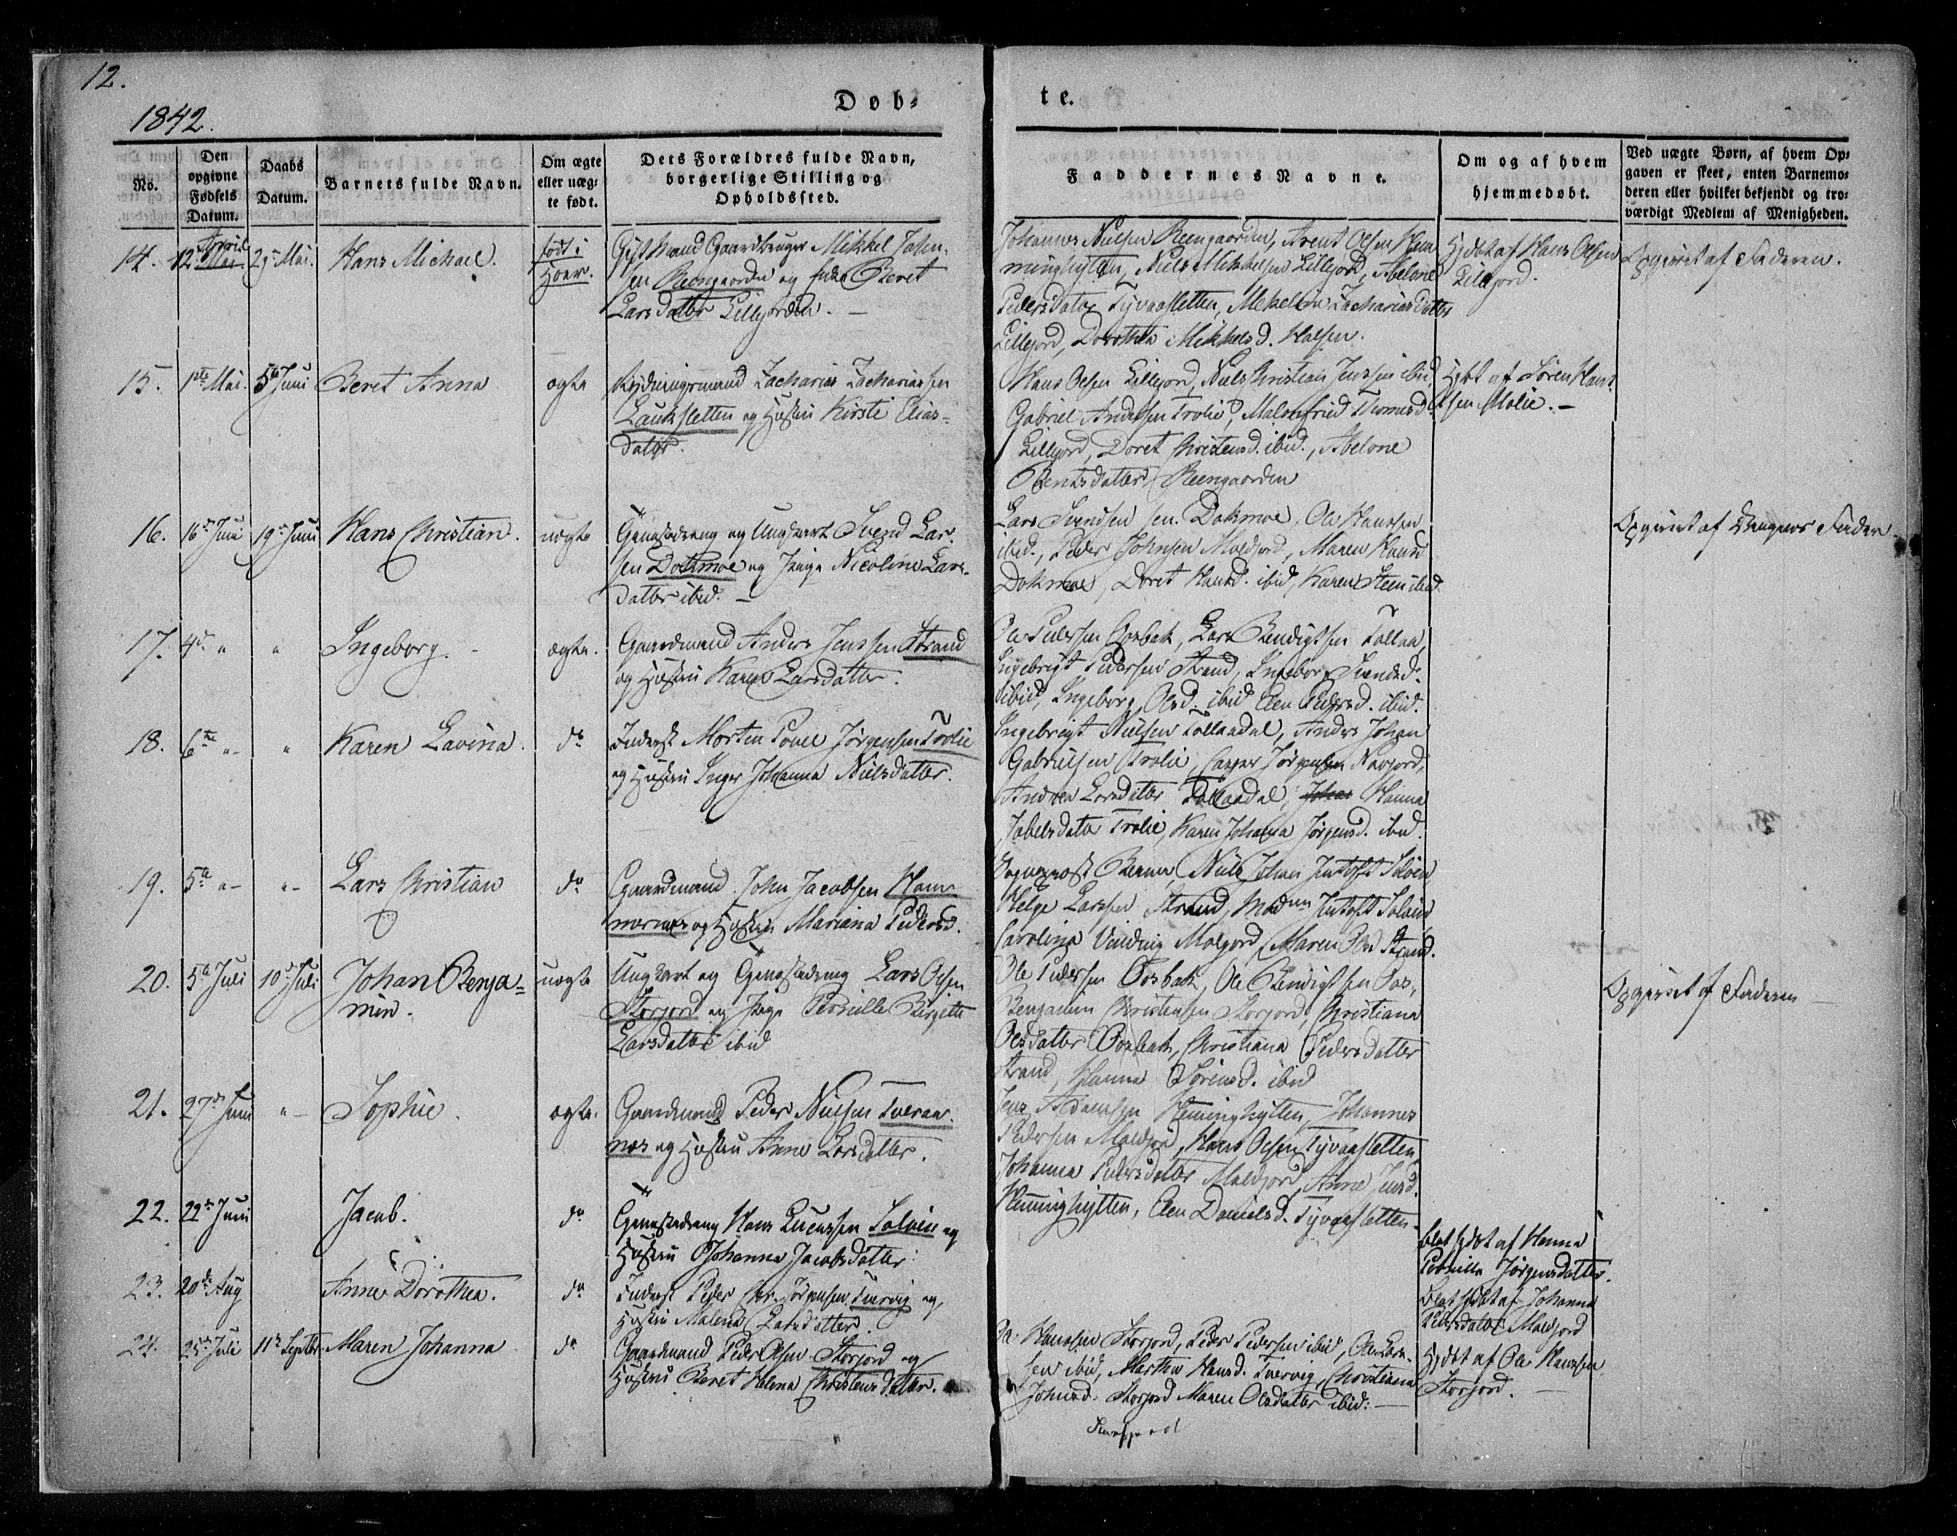 12.
1842.
Døb-
te.
No.
Den opgivne Fødsels Datum.
Daabs Datum.
Barnets fulde Navn.
Om ægte eller uæg- te født.
Dets Forældres fulde Navn, borgerlige Stilling og Opholdssted.
Faddernes Navne.
Om og af hvem hjemmedøbt.
Ved uægte Børn, af hvem Op- gaven er skeet, enten Barnemo- deren eller hvilket bekjendt og tro- værdigt Medlem af Menigheden.
14. 12 April 29 Mai. Hans Michael. født i Hoer.
Gift Mand Gaardbruger Mikkel Johan-
sen Reengaarden og Beret
Larsdatter Lillejorden.
Johannes Nielsen Reengaarden, Arent Olsen Hem-
minghytten, Niels Mikkelsen Lillejord, Abelone
Pedersdatter Tyvaasletten, Zachariasdatter
Lillejord, Dorothea Mikkelsd. Halsen.
Hjdbt af Hans Olsen
Lillejord.
Opgivet af Faderen.
15. 1ste Mai. 5te Juni Beret Anna ægte
Rydningsmand Zacharias Zachariassen
Laukslette og Hustru Kirsti Elias-
datter.
Hans Olsen Lillejord, Niels Christian Jenssen ibid,
Gabriel Andersen Trolie, Malenfried Thomasd.
Lillejord, Doret Christensd. ibid., Abelone
Bentsdatter Reengaarden
Hjdbt af Søren Hans-
sen Molie. –
16. 16de Juni 19de Juni Hans Christian. uægte
Gaardsdreng og Ungkarl Svend Lar-
sen Dokmoe og Pige Nicoline Lars-
datter ibid. –
Lars Svendsen sen. Dokmoe, Ole Hanssen
ibid., Peder Johnsen Moldjord, Maren Hansd
Dokmoe, Doret Hansd. ibid, Karen Steen ibid
Opgivet af Barnets Fader.
17. 4de " " Ingeborg. ægte.
Gaardmand Anders Jenssen Strand
og Hustru Karen Larsdatter.
Ole Pedersen Oosbak, Lars Bendigtsen Tollaa,
Ingebrigt Pedersen Strand, Ingeborg Svendsd.
ibid, Ingeborg Olsd. ibid Elen Pedersd. ibid.
18. 6te " " Karen Lavina. do
Inderst Morten Povel Jørgensen Trolie
og Hustru Inger Johanna Nielsdatter.
Ingebrigt Nielsen Tollaadal, Anders Johan
Gabrielsen Trolie, Casper Jørgensen Navjord,
Andrea Larsdatter Tollaadal, Hanna
Jakelsdatter Trolie, Karen Johanna Jørgensd. ibid.
19. 5te " " Lars Christian do
Gaardmand John Jacobsen Ham-
mernes og Hustru Mariana Pedersd.
Sogneprest Niels Johan Jentoft Solvin
Helge Larssen Strand, Madm Jentoft Solvin,
Carolina Moljord, Maren Olsd Strand.
20. 5te Juli 10de Juli Johan Benja-
min. uægte
Ungkarl og Gaardsdreng Lars Olsen
Storjord og Pige Pernille Birgitte
Larsdatter ibid
Ole Pedersen Oosbak, Ole Bendigtsen Oos,
Benjamin Christensen Storjord, Christiana
Olsdatter Oosbak, Christiana Pedersdatter
Strand, Hanna Sørensd. ibid
Opgivet af Faderen
21. 27de Juni " Sophie. ægte.
Gaardmand Peder Nielsen Tveraa-
næs og Hustru Anne Larsdatter.
Jens Adamsen Heminghytten, Johannes
Pedersen Moldjord, Hans Olsen Tyvaasletten,
Johanna Pedersdatter Moldjord, Anne Jensd.
Hemminghytten, Elen Danielsd. Tyvaasletten.
22. 22de Juni Jacob. do
Gaardsdreng Hans Lucassen Solvin og
Hustru Johanna Jacobsdatter.
Blot hjdbt af Hanna
Pernille Jørgensdatter.
23. 20de Aug Anne Dorothea. do
Inderst Peder Jørgensen Tvervig og
Hustru Malena Larsdatter.
Blot hjdbt af Johanna
Pedersdatter Moldjord
24. 25de Juli 11te Septbr Maren Johanna do
Gaardmand Peder Olsen Storjord og
Hustru Beret Helena Christensdatter.
Ole Hanssen Storjord, Peder Pedersen ibid, Ole Lars-
sen ibid, Martha Hansd. Tvervig, Christiana
Johnsd. Storjord Maren Olsdatter ibid. –
Hjdbt af Ole Hanssen
Storjord. –